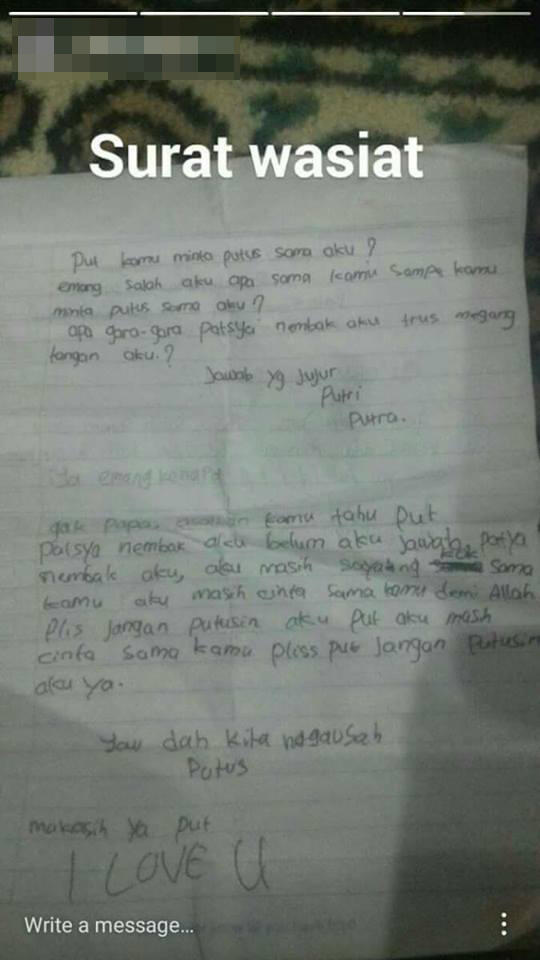 Surat wasiat
Put kamu minta putus sama aku?
emang salah aku apa sama kamu sampe kamu
minta putus sama aku?
apa gara-gara Patsya nembak aku trus megang
tangan aku.?
Jawab yg jujur
Putri
Putra.
iya emang kenapa
gak papa, kamu tahu Put
Patsya nembak aku belum aku jawab, patya
nembak aku, aku masih sayang kok sama
kamu aku masih cinta sama kamu demi Allah
Plis jangan putusin aku put aku masih
cinta sama kamu pliss put jangan putusin
aku ya.
Yau dah kita nggausah
Putus
makasih ya put
I LOVE U
Write a message...